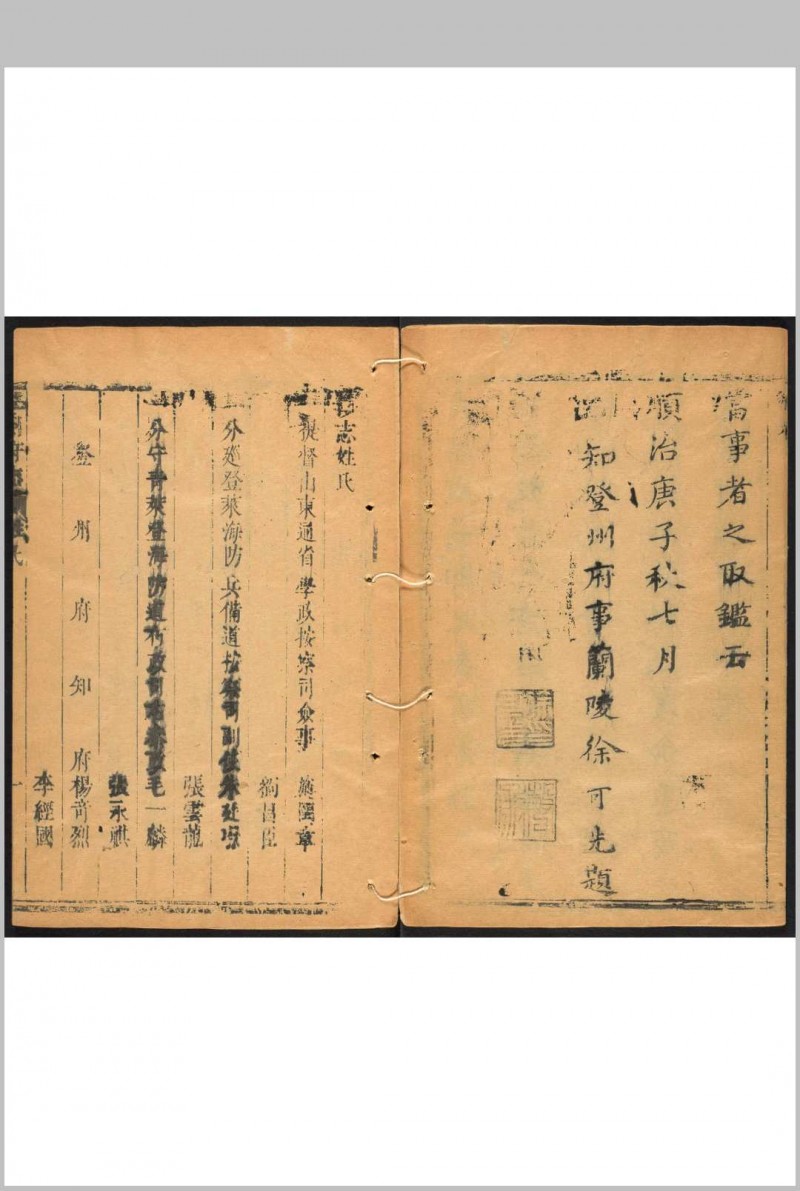 當事者之取鑑云
順治庚子秋七月
知登州府事蘭陵徐可先題
志姓氏
提督山東通省學政按察司僉事
翁昌臣
分巡登萊海防兵備道按察司副使
張雲龍
分守青萊登海防道布政司右參政毛一麟
張永祺
登州府知府楊奇烈
李經國
一